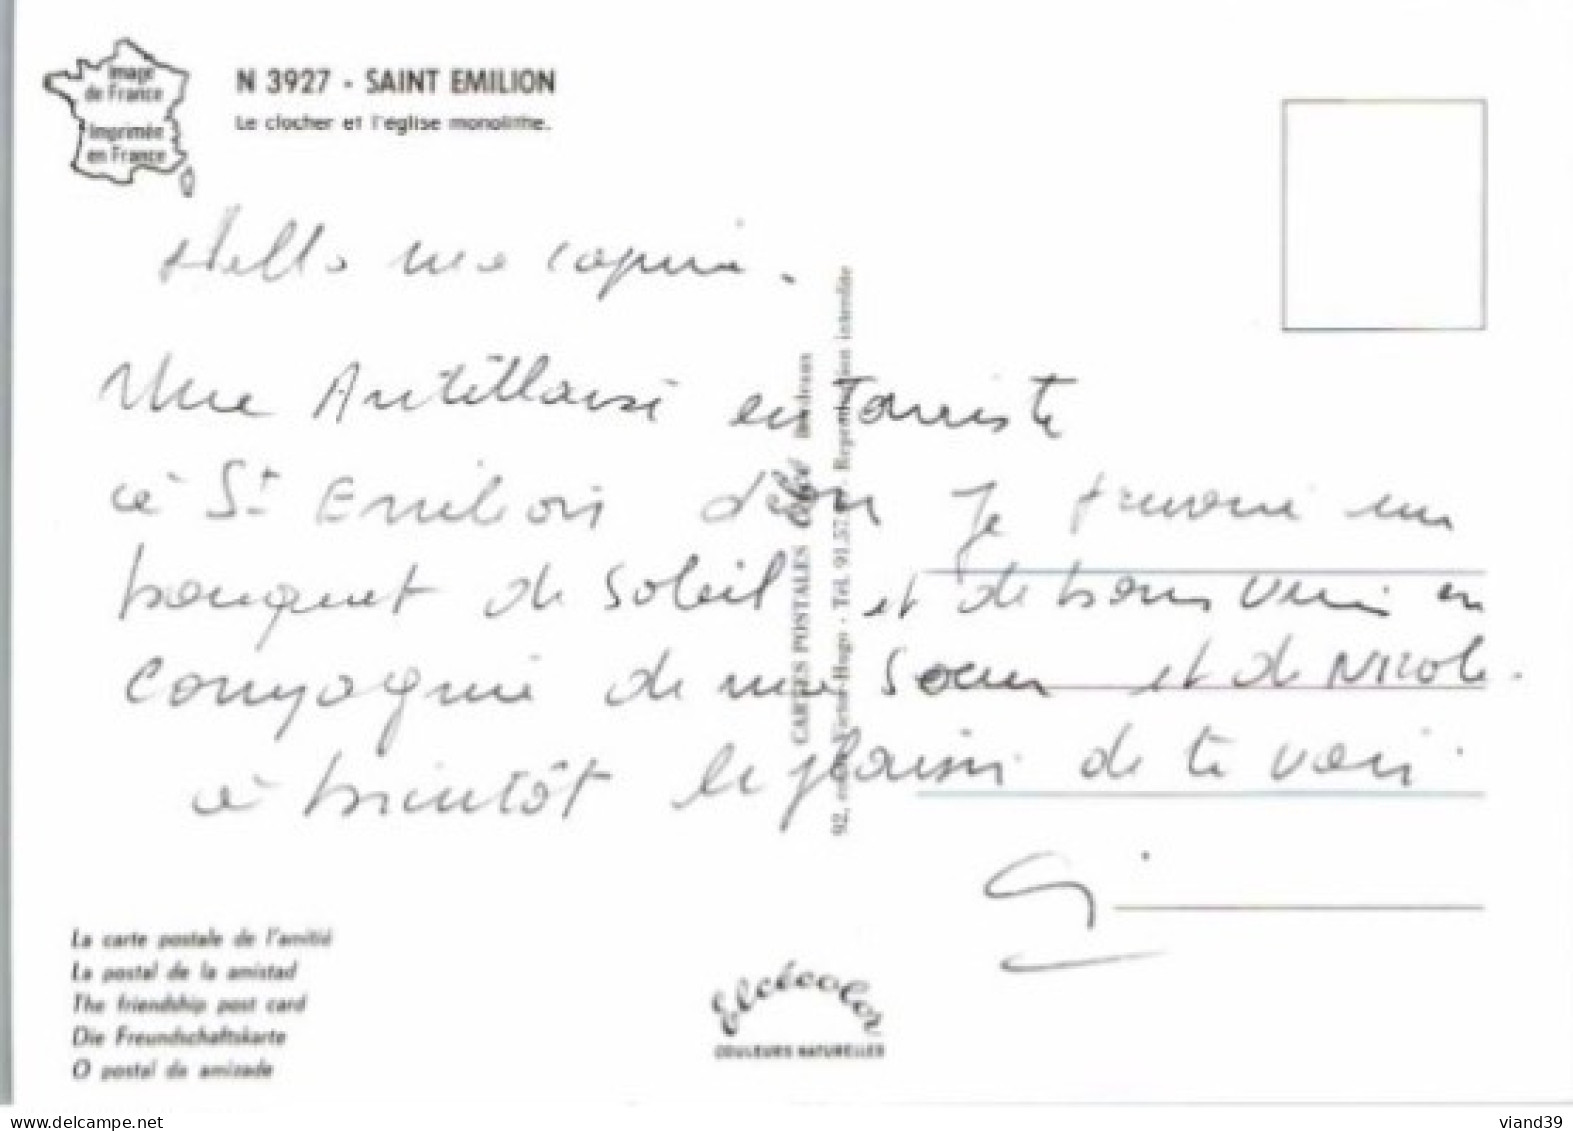 Image
de France
Imprimée
en France
N 3927 - SAINT EMILION
Le clocher et l'église monolithe.
Hello ma copine.
Une Antillaise en Touriste
à St Emilion d'où Je t'envoie un
bouquet de soleil et de bons vins en
compagnie de ma soeur et de Nicole.
à bientôt le plaisir de te voir.
CARTES POSTALES Elcé Bordeaux
Victor-Hugo - Tél. 91.57. - Reproduction interdite
La carte postale de l'amitié
La postal de la amistad
The friendship post card
Die Freundschaftskarte
O postal da amizade
Elcécolor
COULEURS NATURELLES
delcampe.net
viand39